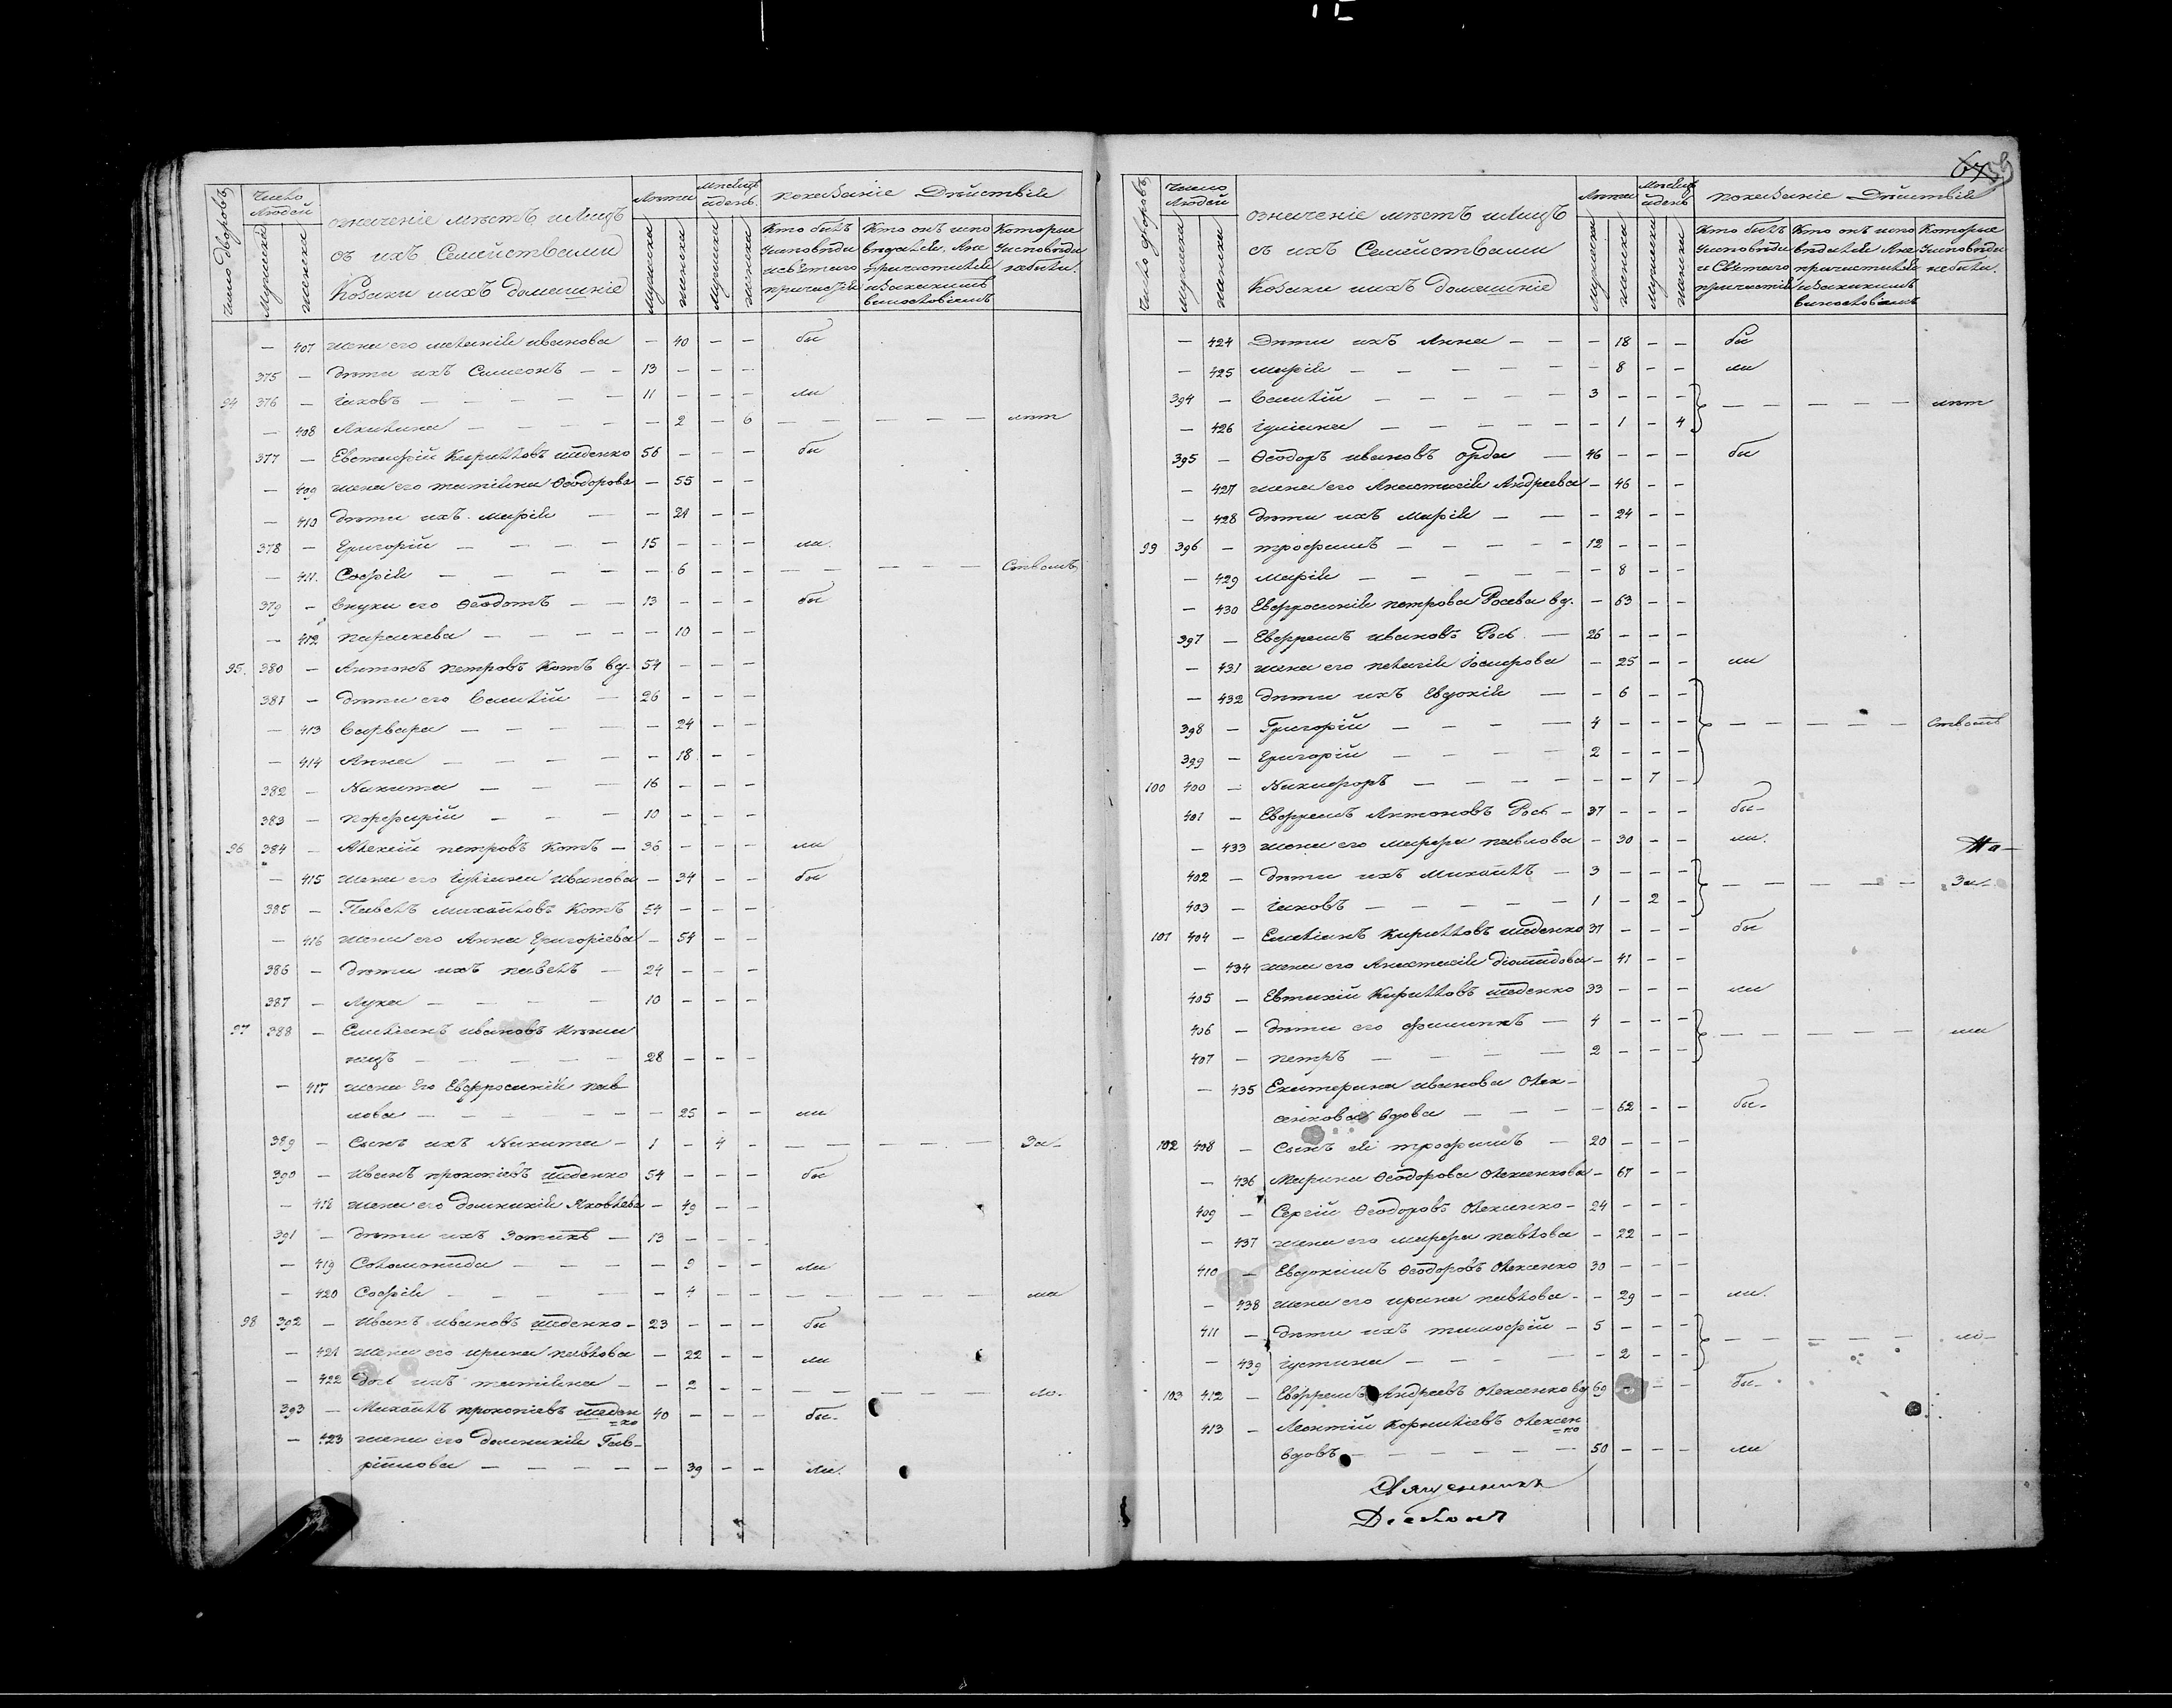 число дворовъ
Число людей
мужска
женска
означеніе мѣстъ и лицъ
съ ихъ Семействами
Козаки и ихъ домашніе
Лѣта
мужска
женска
мѣсяцъ и день
мужска
женска
показаніе Дѣйствія
Кто былъ у исповѣди и святаго причастія
Которые у исповѣди не были.
— 407 жена его меланія иванова — 40 — — бы
375 — дѣти ихъ Симеонъ — — 13 — — —
94 376 — іаковъ — 11 — — — ли
— 408 Акилина — — 2 — 6 — лѣт
377 — Евстафій Кирилловъ шеденко 56 — — — бы
— 409 жена его татіяна Ѳеодорова — 55 — —
— 410 дѣти ихъ марія — — 21 — —
378 — Григорій — 15 — — — ли.
— 411. Софія — — 6 — — — Ствомъ
379 — внуки его Ѳеодотъ — — 13 — — — бы
— 412 параскева — — 10 — —
95. 380 — Антонъ петровъ Котъ вд. 54 — — —
381 — дѣти его Василій — 26 — — —
— 413 Варвара — — 24 — —
— 414 Анна — — 18 — —
382 — Никита — 16 — — —
383 — порфирій — 10 — — —
96 384 — Алексій петровъ Котъ — 36 — — — ли
— 415 жена его Іуліана Иванова — 34 — — бы
385 — Павелъ михайловъ Котъ 54 — — —
— 416 жена его Анна Григоріева — 54 — —
386 — дѣти ихъ павелъ — 24 — — —
387 — Лука — 10 — — —
97 388 — Емеліянъ ивановъ
28 — — —
— 417 жена Его Евфросинія пав
лова — — 25 — — ли
389 — Сынъ ихъ Никита — 1 — 4 — — За-
390 — Иванъ прокопіевъ шеденко 54 — — — бы
— 418 жена его домникія Яковлева — 49 — —
391 — дѣти ихъ Зотикъ — 13 — — —
— 419 Соломонида — — 9 — — ли
— 420 Софія — — 4 — — — ма
98 392 — Иванъ ивановъ шеденко — 23 — — — бы
— 421 жена его ирина павлова — 22 — — ли
— 422 дочь ихъ татіяна — — 2 — — — ло-
393 — Михаилъ прокопіевъ шеден
=ко 40 — — — бы-
— 423 жена его домникія Гав-
ріилова — — 39 — — ли.
число дворовъ
Число людей
мужска
женска
означеніе мѣстъ и лицъ
съ ихъ Семействами
Козаки и ихъ домашніе
Лѣта
мужска
женска
Мѣсяцъ и день
мужска
женска
показаніе Дѣйствія
Кто былъ у исповѣди и Святаго причастія
Которые у исповѣди не были.
— 424 Дѣти ихъ Анна — — — 18 — — бы
— 425 марія — — 8 — — ли
394 — Василій — 3 — — —
— 426 іуліана — — 1 — 4 — лѣт
395 — Ѳеодоръ ивановъ орда — 46 — — — бы
— 427 жена его Анастасія Андреева — 46 — —
— 428 дѣти ихъ Марія — — 24 — —
99 396 — трофимъ — 12 — — —
— 429 марія — — 8 — —
— 430 Евфросинія петрова Росева вд. — 63 — —
397 — Ефремъ ивановъ Рось — 26 — — —
— 431 жена его пелагія — 25 — — ли
— 432 дѣти ихъ Евдокія — — 6 — —
398 — Григорій — 4 — — — Ствомъ
399 — Григорій — 2 — — —
100 400 — Никифоръ — — — 7 —
401 — Ефремъ Антоновъ Рось — 37 — — — бы-
— 433 жена его марфа павлова — 30 — — ли.
402 — дѣти ихъ Михаилъ — 3 — — — За-
403 — іаковъ — 1 — 2 —
101 404 — Емеліанъ Кирилловъ шеденко 37 — — — бы
— 434 жена его Анастасія діомидова — 41 — —
405 — Евтихій Кирилловъ шеденко 33 — — — ли
406 — дѣти его филиппъ — 4 — — — ма
407 — петръ — 2 — — —
— 435 Екатерина иванова Олек-
сенкова вдова — — 62 — — бы-
102 408 — Сынъ ея трофимъ — 20 — — —
— 436 Марина Ѳеодорова Олексенкова — 67 — —
409 — Сергій Ѳеодоровъ Олексенко — 24 — — —
— 437 жена его марфа павлова — 22 — —
410 — Евдокимъ Ѳеодоровъ Олексенко 30 — — —
— 438 жена его ирина павлова — — 29 — — ли.
411 — дѣти ихъ тимофій — 5 — — — ло-
— 439 іустина — — 2 — —
103 412 — Ефремъ Андреевъ Олексенко вд 69 — — — бы-
413 — Леонтій Корниліевъ Олексен
=ко
вдовъ — 50 — — — ли
Священникъ
Діаконъ